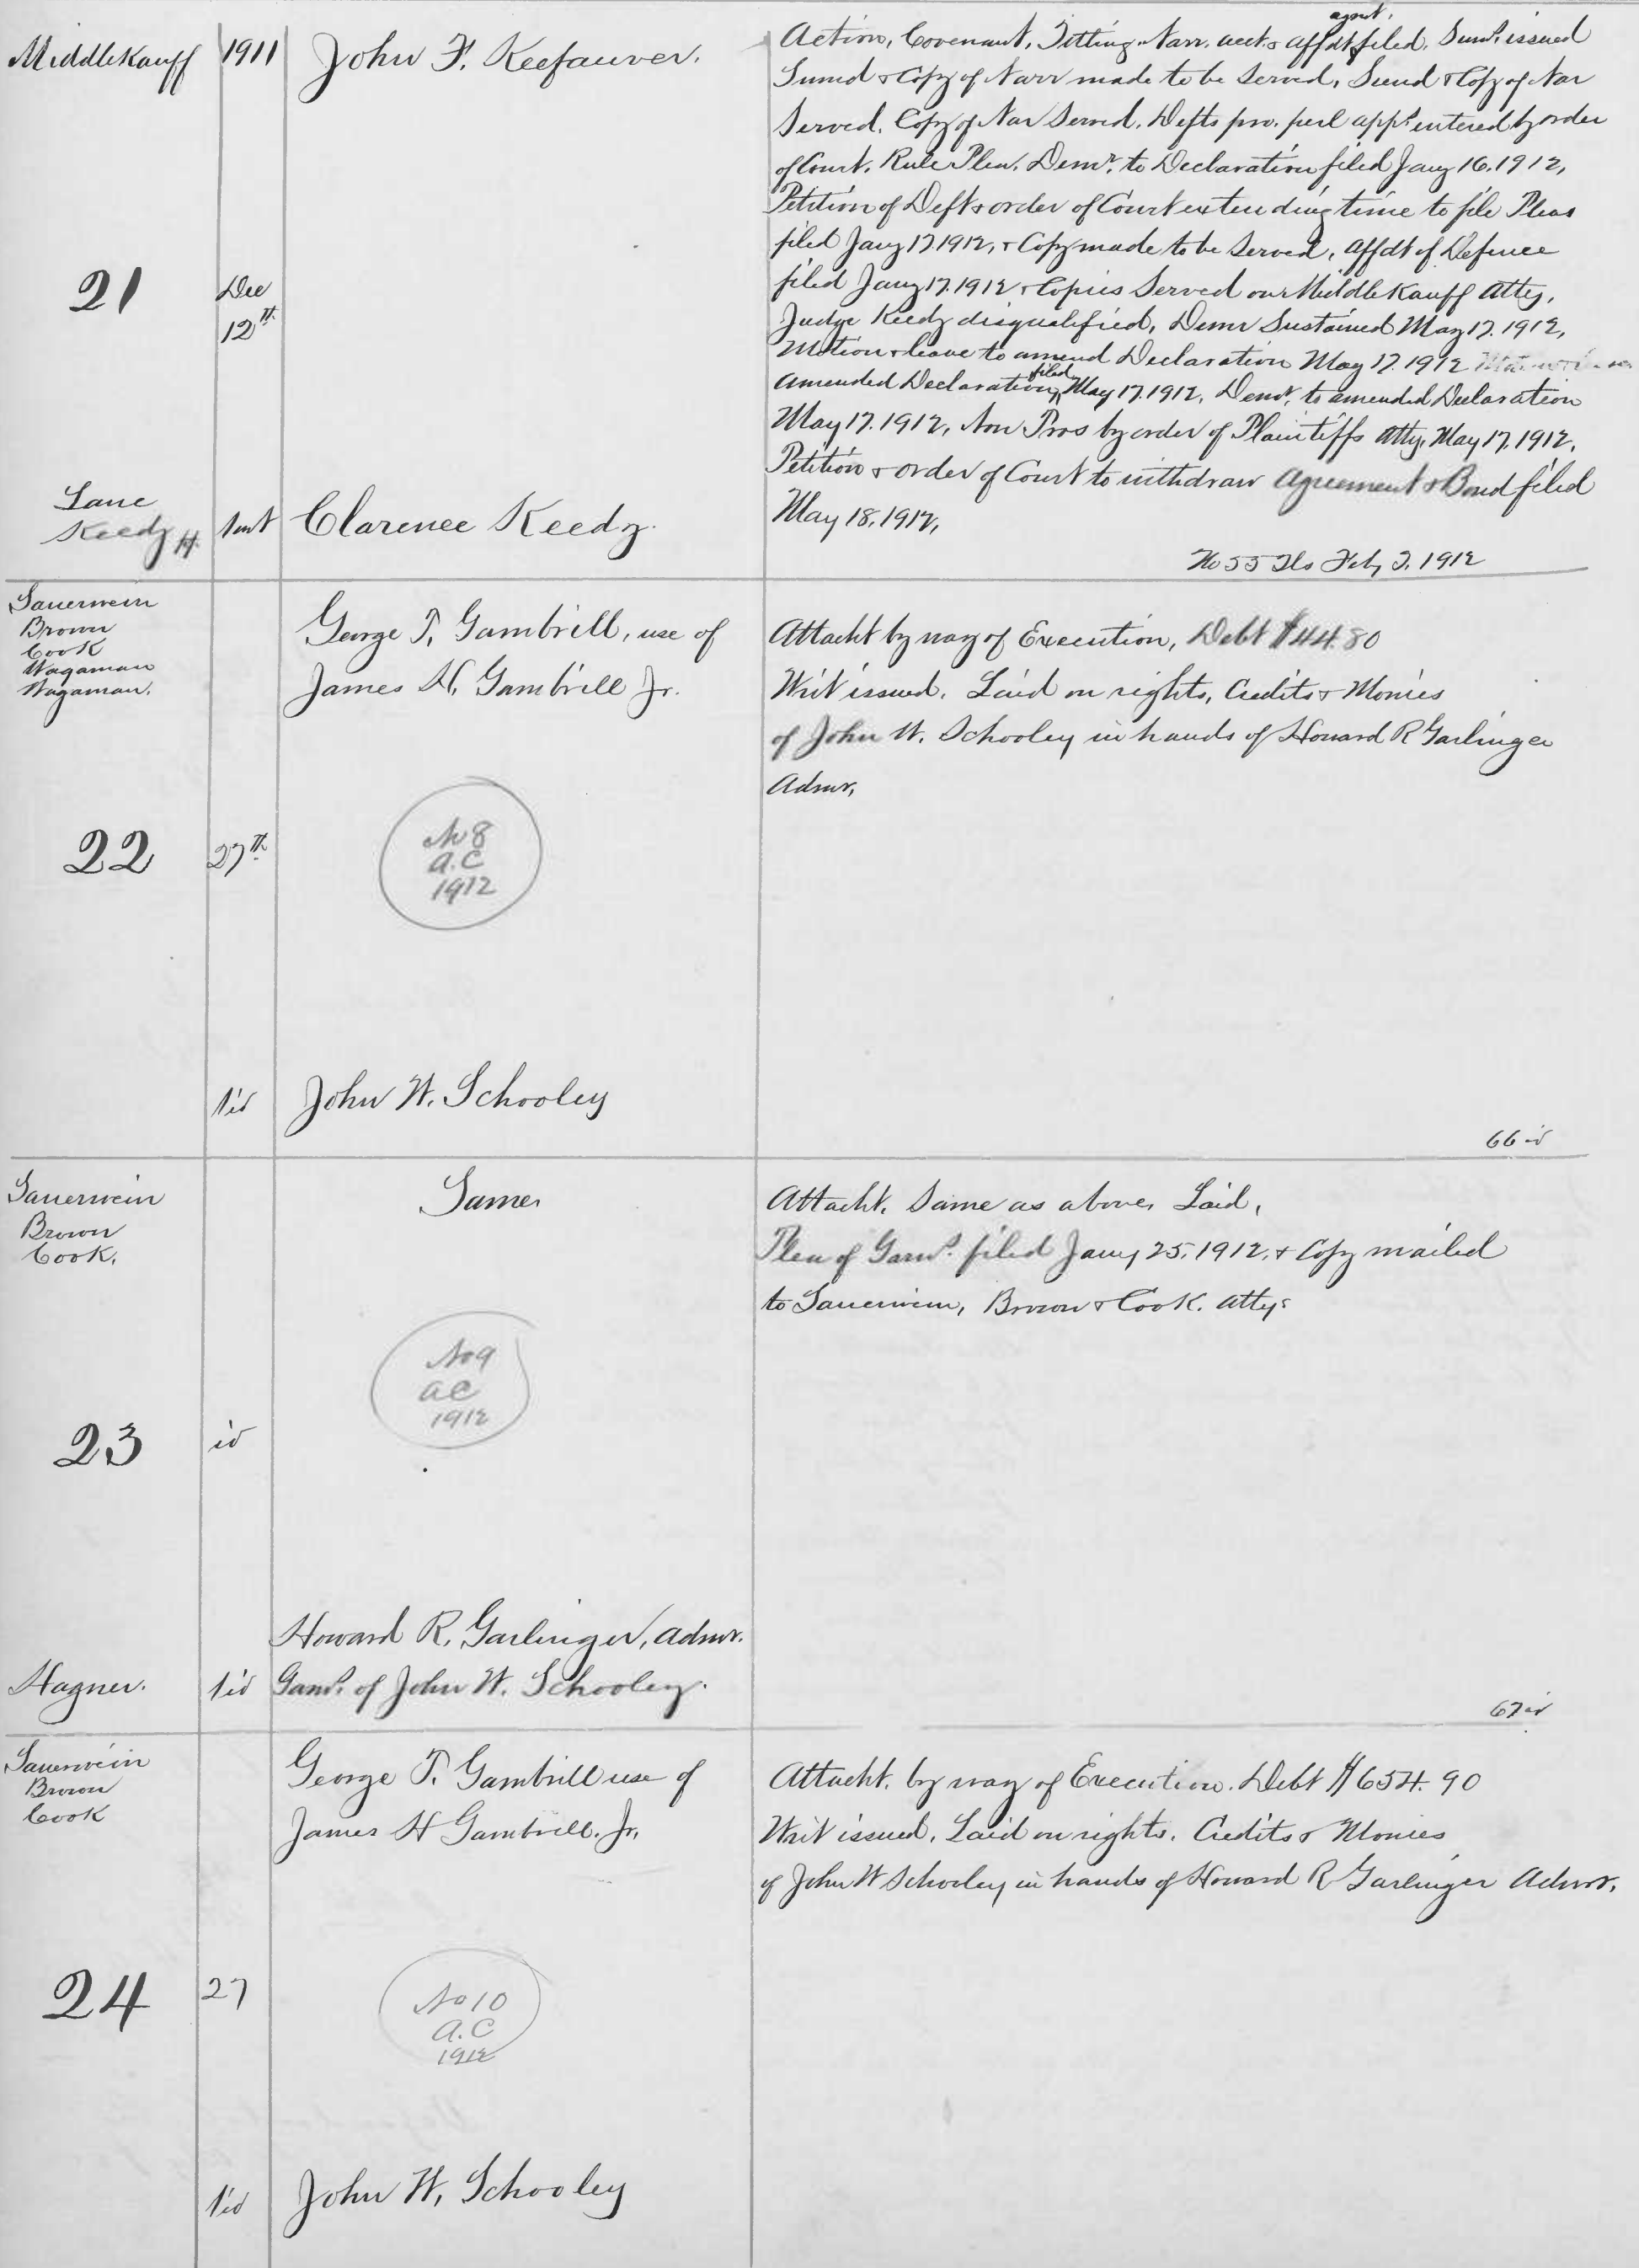 Middlekauff 1911 John F. Keefauver.
Action, Covenant, Titling. Narr. acct. & affdt filed. Sums. issued
agmt.
Sumd & Copy of Narr made to be Served. Sumd & Copy of Nar
Served. Copy of Nar Served. Defts pro. perl appe entered by order
of Court. Rule Plea. Demr. to Declaration filed Jany 16. 1912,
Petition of Deft & order of Court extending time to file Pleas
filed Jany 17 1912, & Copy made to be Served, affdt of Defence
filed Jany 17. 1912 & Copies Served on Middlekauff Atty,
21 Dec 12th
Judge Keedy disqualified, Demr Sustained May 17. 1912,
Motion & leave to amend Declaration May 17. 1912
amended Declaration filed May 17. 1912, Demr. to amended Declaration
May 17. 1912, Non Pros by order of Plaintiffs Atty. May 17, 1912.
Petition & order of Court to withdraw Agreement & Bond filed
May 18, 1912,
Lane
Keedy H. Clarence Keedy.
No 55 Feby 3. 1912
Sauerwein
Brown
Cook
Wagaman
Wagaman.
George T. Gambrill, use of
James H. Gambrill Jr.
Attacht by way of Execution, Debt $44.80
Writ issued. Laid on rights, Credits & Monies
of John W. Schooley in hands of Howard R Garlinger
Admr,
22 27th
No 8
A.C
1912
1 id John W. Schooley
66 id
Sauerwein
Brown
Cook.
Same
Attacht. Same as above, Laid,
Plea of Garns. filed Jany 25. 1912. & Copy mailed
to Sauerwein, Brown & Cook. Attys
No 9
AC
1912
23 id
Howard R. Garlinger, Admr.
Hagner. 1 id Garns. of John W. Schooley.
67 id
Sauerwein
Brown
Cook
George T. Gambrill use of
James H Gambrill. Jr.
Attacht. by way of Execution. Debt $654.90
Writ issued. Laid on rights. Credits & Monies
of John W Schooley in hands of Howard R Garlinger Admr.
24 27
No 10
A.C
1912
1 id John W. Schooley